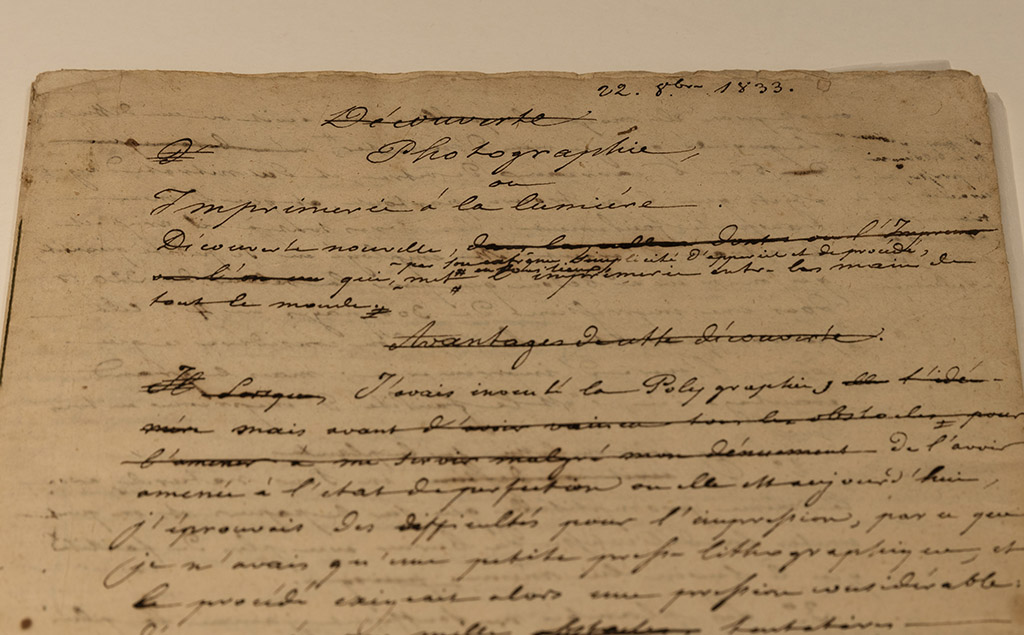 22. 8bre 1833.
Découverte
D'
Photographie,
ou
Imprimerie à la lumiére.
Découverte nouvelle, dont ou l'Imprime
par son extrême simplicité d'appareil et de procédé,
qui, met l'imprimerie entre les mains de
tout le monde.
Avantages de cette découverte.
Lorsque J'avais inventé la Polygraphie, elle l'idée
mère mais avant d'avoir vaincu tous les obstacles pour
l'amener à me servir malgré mon dénuement De l'avoir
amenée à l'etat de perfection ou elle est aujourd'hui,
j'éprouvais des difficultés pour l'impression, par ce que
je n'avais qu'une petite presse lithographique, et
le procédé exigeait alors une pression considérable:
mille tentatives